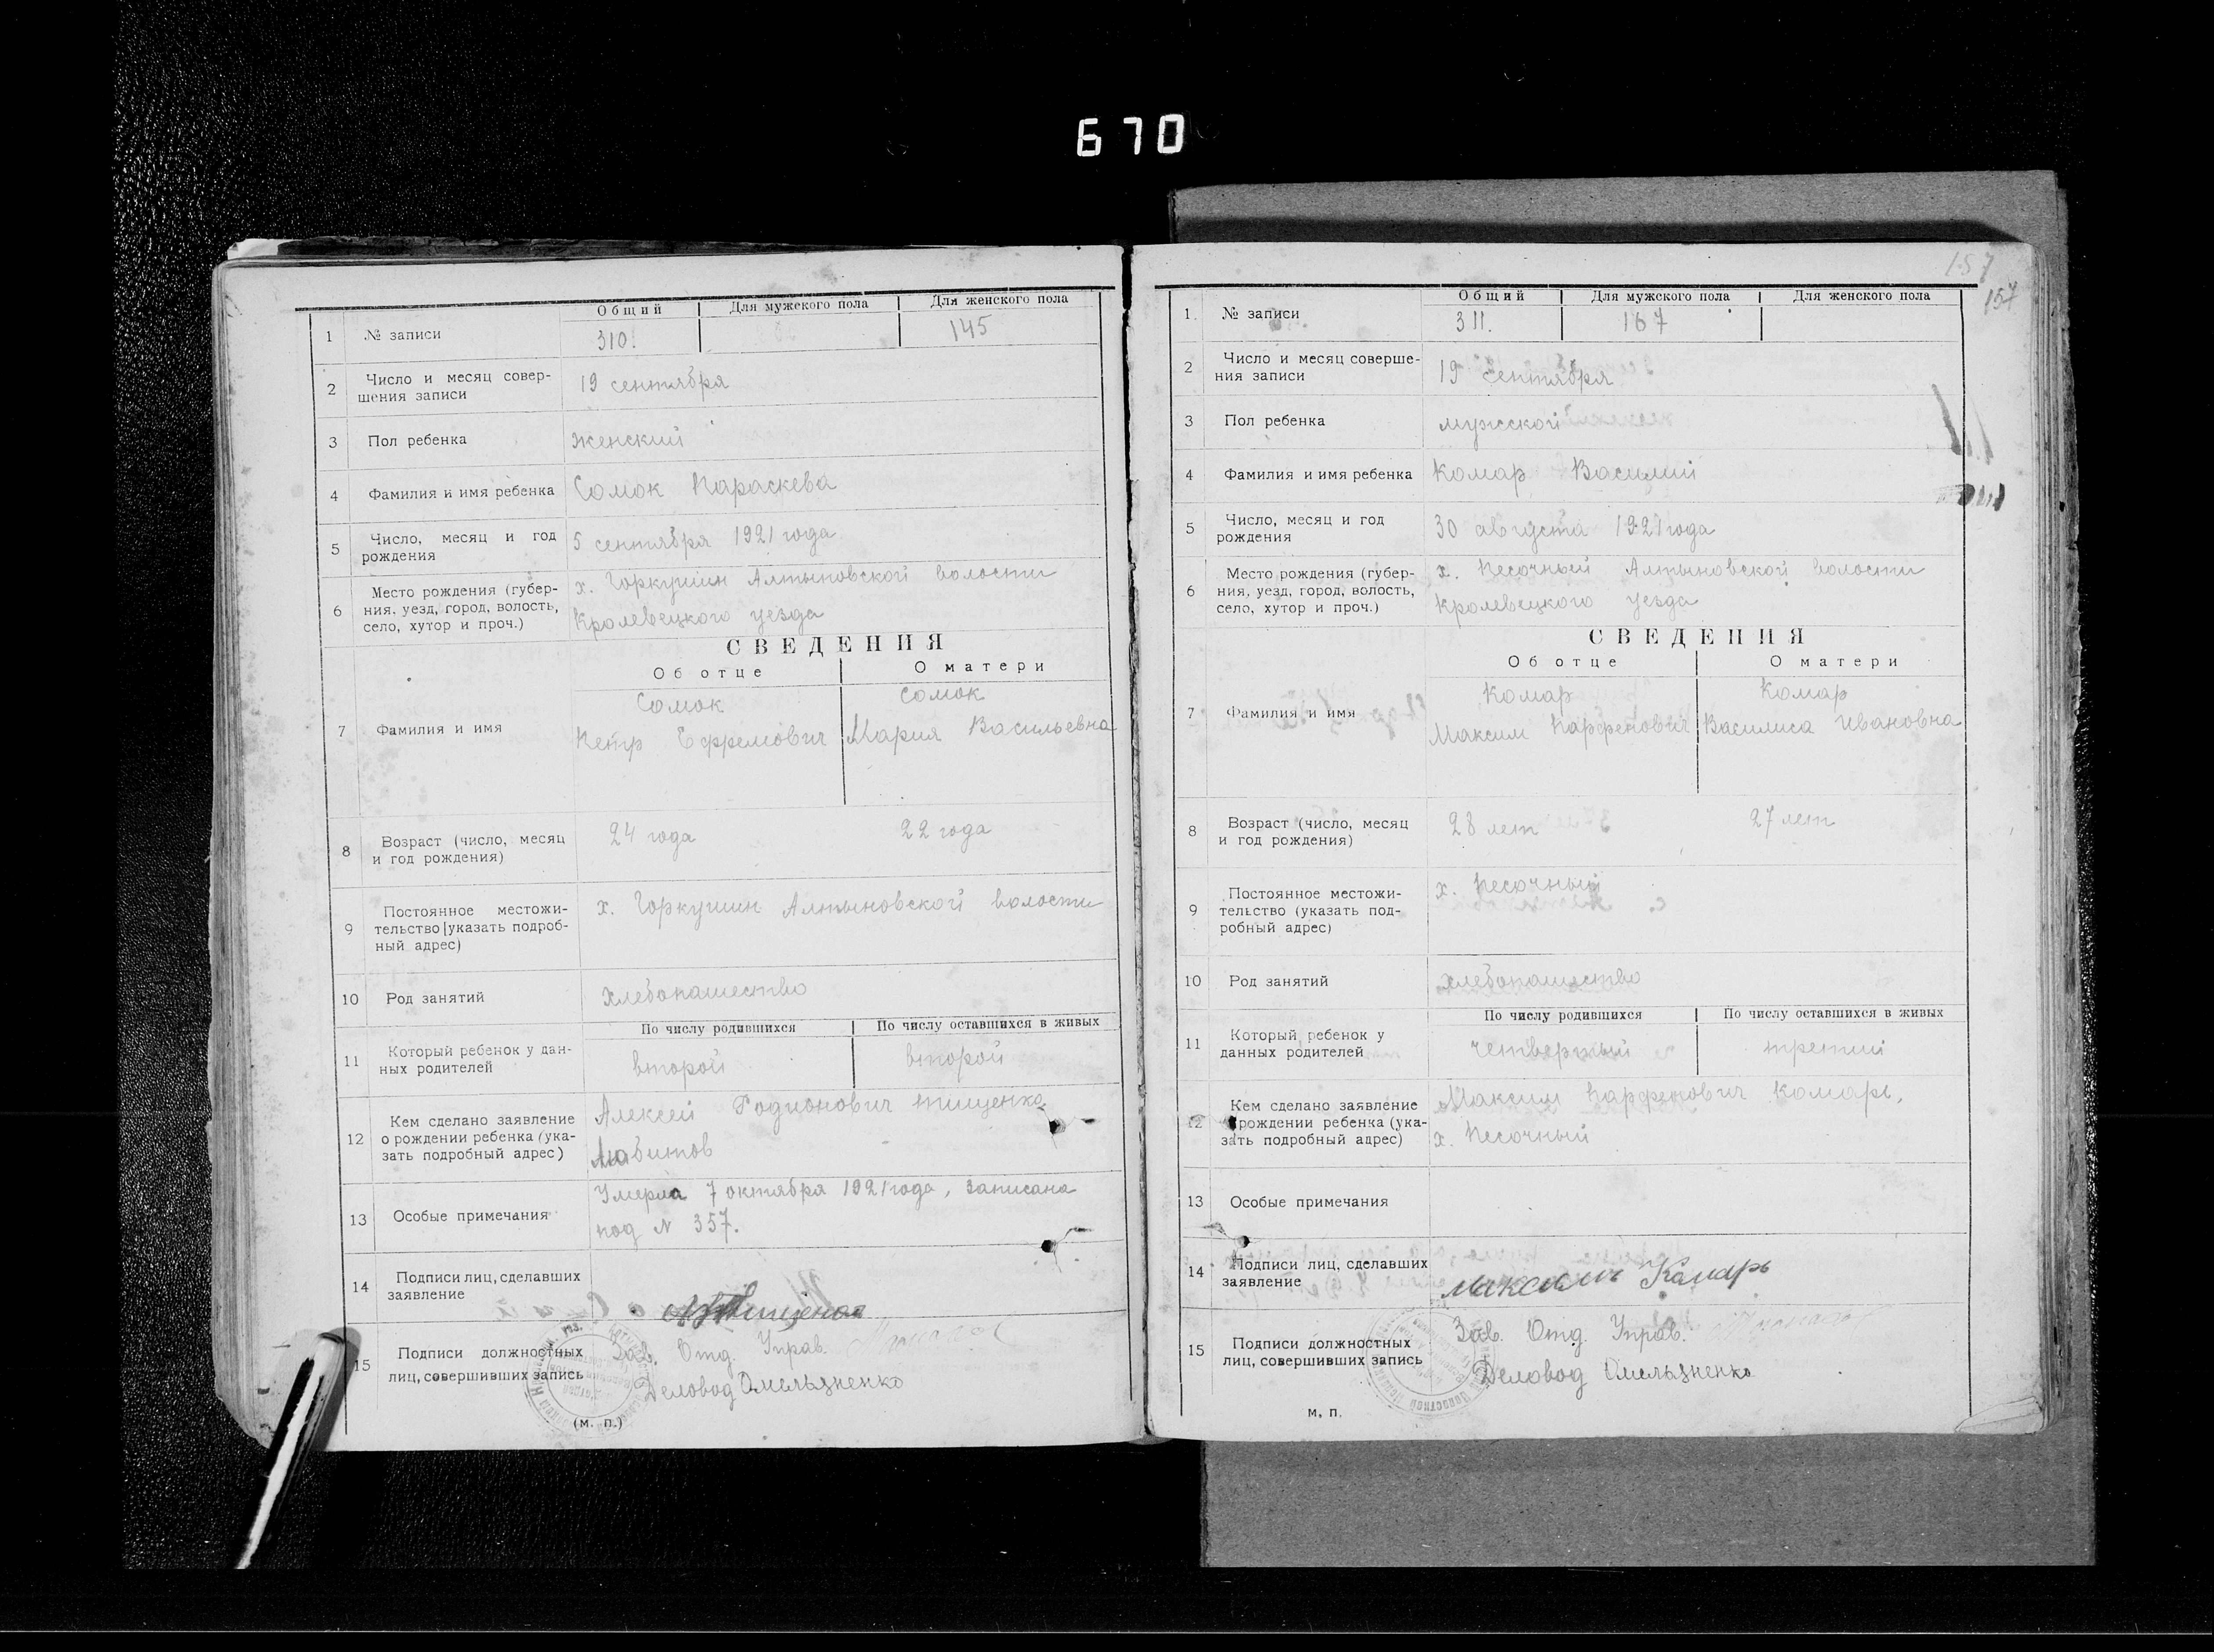 670
Общий Для мужского пола Для женского пола
1 № записи 310. 145
2 Число и месяц совер-
шения записи 19 сентября
3 Пол ребенка женский
4 Фамилия и имя ребенка Сомок Параскева
5 Число, месяц и год
рождения 5 сентября 1921 года
6 Место рождения (губер-
ния, уезд, город, волость,
село, хутор и проч.)
х. Горкушин Алтыновской волости
Кролевецкого уезда
СВЕДЕНИЯ
Об отце О матери
7 Фамилия и имя
Сомок Сомок
Петр Ефремович Мария Васильевна
8 Возраст (число, месяц
и год рождения) 24 года 22 года
9 Постоянное местожи-
тельство (указать подроб-
ный адрес)
х. Горкушин Алтыновской волости
10 Род занятий хлебопашество
По числу родившихся По числу оставшихся в живых
11 Который ребенок у дан-
ных родителей второй второй
12 Кем сделано заявление
о рождении ребенка (ука-
зать подробный адрес)
Алексей Родионович Тищенко
Любитов
13 Особые примечания
Умерла 7 октября 1921 года, записана
под № 357.
14 Подписи лиц, сделавших
заявление
А Тищенко
15 Подписи должностных
лиц, совершивших запись
Зав. Отд. Управ.
Деловод Омельяненко
(м. п.)
157
157
Общий Для мужского пола Для женского пола
1. № записи 311. 167
2 Число и месяц соверше-
ния записи 19 сентября
3 Пол ребенка мужской
4 Фамилия и имя ребенка Комар Василий
5 Число, месяц и год
рождения 30 августа 1921 года
6 Место рождения (губер-
ния, уезд, город, волость,
село, хутор и проч.)
х. Песочный Алтыновской волости
Кролевецкого уезда
СВЕДЕНИЯ
Об отце О матери
7 Фамилия и имя
Комар Комар
Максим Парфенович Василиса Ивановна
8 Возраст (число, месяц
и год рождения) 28 лет 27 лет
9 Постоянное местожи-
тельство (указать под-
робный адрес)
х. Песочный
10 Род занятий хлебопашество
По числу родившихся По числу оставшихся в живых
11 Который ребенок у
данных родителей четвертый третий
12 Кем сделано заявление
о рождении ребенка (ука-
зать подробный адрес)
Максим Парфенович Комарь,
х. Песочный
13 Особые примечания
14 Подписи лиц, сделавших
заявление
Максим Комарь
15 Подписи должностных
лиц, совершивших запись
Зав. Отд. Управ.
Деловод Омельяненко
м, п.